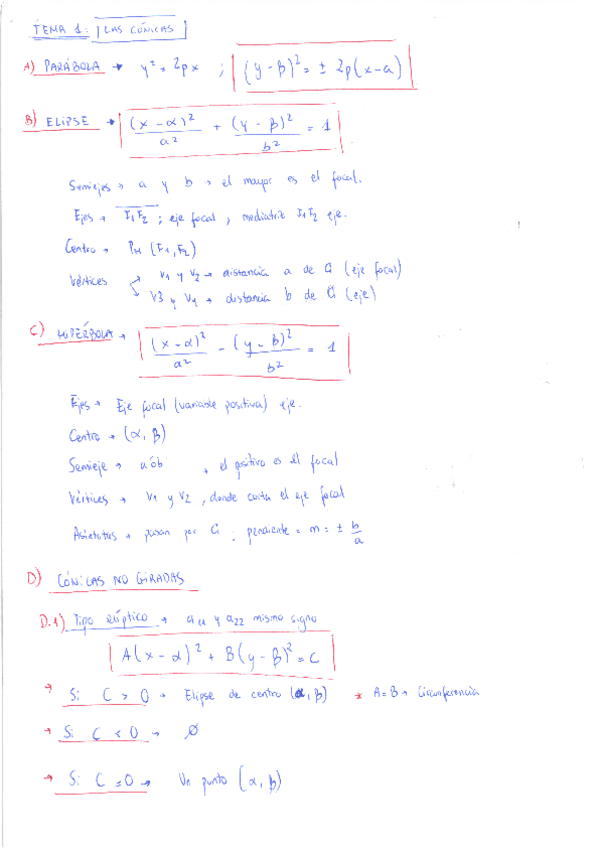 TEMA 1: LAS CÓNICAS
A) PARÁBOLA → y² = 2px ; (y - β)² = ± 2p(x-a)
B) ELIPSE → (x - α)²/a² + (y - β)²/b² = 1
Semiejes → a y b → el mayor es el focal.
Ejes → F1F2 ; eje focal, mediatriz F1F2 eje.
Centro → PM (F1, F2)
Vértices → V1 y V2 → distancia a de C (eje focal)
→ V3 y V4 → distancia b de C (eje)
C) HIPÉRBOLA → (x - α)²/a² - (y - β)²/b² = 1
Ejes → Eje focal (variable positiva) eje.
Centro → (α, β)
Semieje → a ó b → el positivo es el focal
Vértices → V1 y V2, donde corta el eje focal
Asíntotas → pasan por C ; pendiente = m = ± b/a
D) CÓNICAS NO GIRADAS
D.1) Tipo elíptico → a11 y a22 mismo signo
A(x - α)² + B(y - β)² = C
→ Si C > 0 → Elipse de centro (α, β) * A = B → Circunferencia
→ Si C < 0 → Ø
→ Si C = 0 → Un punto (α, β)